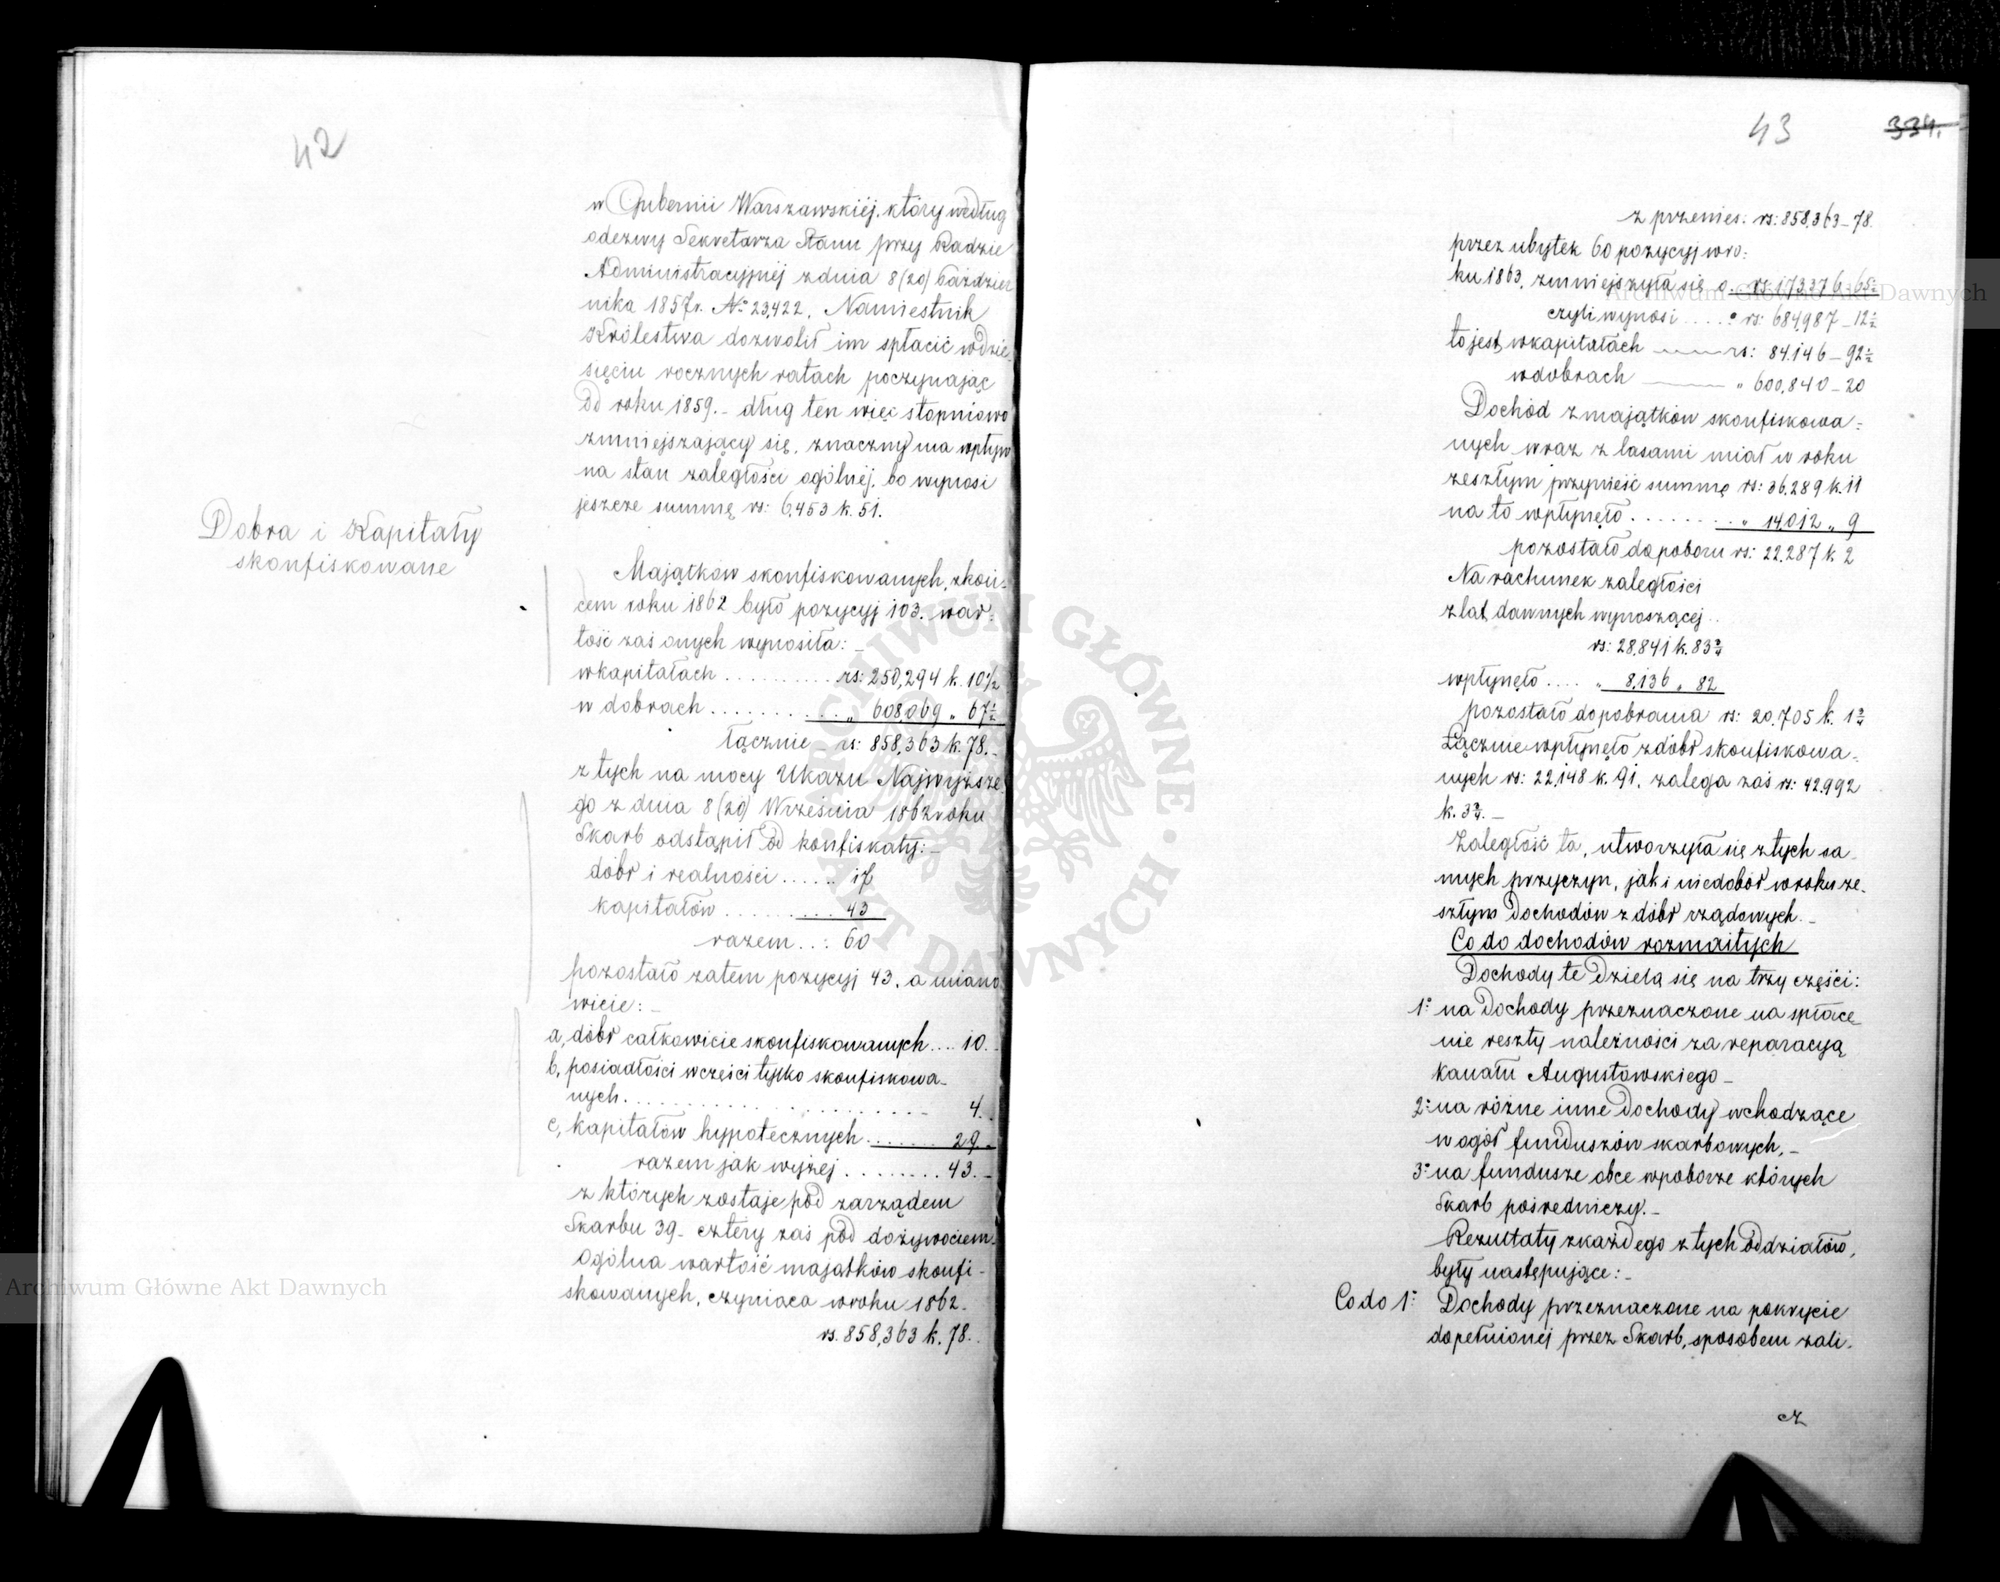 42
w Gubernii Warszawskiéj, który według
odezwy Sekretarza Stanu przy Radzie
Administracyjnéj z dnia 8 (20) Paździer
nika 1857 r. No 23,422, Namiestnik
Królestwa dozwolił im spłacić w dzie-
sięciu rocznych ratach poczynając
od roku 1859. – dług ten więc stopniowo
zmniejszający się, znaczny ma wpływ
na stan zaległości ogólnéj, bo wynosi
jeszcze summę rs: 6,453 k. 51.
Dobra i Kapitały
skonfiskowane
Majątków skonfiskowanych, z koń-
cem roku 1862 było pozycyj 103. war=
tość zaś onych wynosiła: –
w kapitałach .......... rs: 250,294 k. 10 1/2
w dobrach .......... „ 608,069 „ 67 1/2
łącznie – rs: 858,363 k. 78. –
z tych na mocy Ukazu Najwyższe
go z dnia 8 (20) Września 1862 roku
Skarb odstąpił od konfiskaty: –
dóbr i realności ...... 17
kapitałów .......... 43
razem ..: 60
pozostało zatem pozycyj 43. a miano
wicie: –
a, dóbr całkowicie skonfiskowanych .... 10. –
b, posiadłości w części tylko skonfiskowa-
nych .......... 4. –
c, kapitałów hypotecznych ....... 29. –
razem jak wyżej ........ 43. –
z których zostaje pod zarządem
Skarbu 39 – cztéry zaś pod dożywociem.
Ogólna wartość majątków skonfi-
skowanych, czyniąca w roku 1862 –
rs. 858,363 k. 78. .
43
334.
z przenies: rs: 858,363 – 78.
przez ubytek 60 pozycyj w ro=
ku 1863, zmniejszyła się o. rs: 173,376 – 65 1/2
czyli wynosi ..... rs: 684,987 – 12 1/2
to jest, w kapitałach ——— rs: 84,146 – 92 1/2
w dobrach ——— „ 600,840 – 20
Dochód z majątków skonfiskowa=
nych wraz z lasami miał w roku
zeszłym przynieść summę rs: 36,289 k. 11
na to wpłynęło ........ „ 14,012 „ 9
pozostało do poboru rs: 22,287 k. 2
Na rachunek zaległości
z lat dawnych wynoszącej ..
rs: 28,841 k. 83 3/4
wpłynęło .... „ 8,136 „ 82
pozostało do pobrania rs: 20,705 k. 1 3/4
Łącznie wpłynęło z dóbr skonfiskowa=
nych rs: 22,148 k. 91, zalega zaś rs: 42,992
k. 3 3/4. –
Zaległość ta, utworzyła się z tych sa-
mych przyczyn, jak i niedobór w roku ze-
szłym Dochodów z dóbr rządowych. –
Co do dochodów rozmaitych
Dochody te dzielą się na trzy części:
1° na Dochody przeznaczone na spłace-
nie reszty należności za reparacyą
kanału Augustowskiego –
2° na różne inne Dochody wchodzące
w ogół funduszów skarbowych, –
3° na fundusze obce w poborze których
Skarb pośredniczy. –
Rezultaty z każdego z tych oddziałów,
były następujące: –
Co do 1° Dochody przeznaczone na pokrycie
dopełnionej przez Skarb, sposobem zali-
cz
Archiwum Główne Akt Dawnych
Archiwum Główne Akt Dawnych
ARCHIWUM GŁÓWNE · AKT DAWNYCH ·